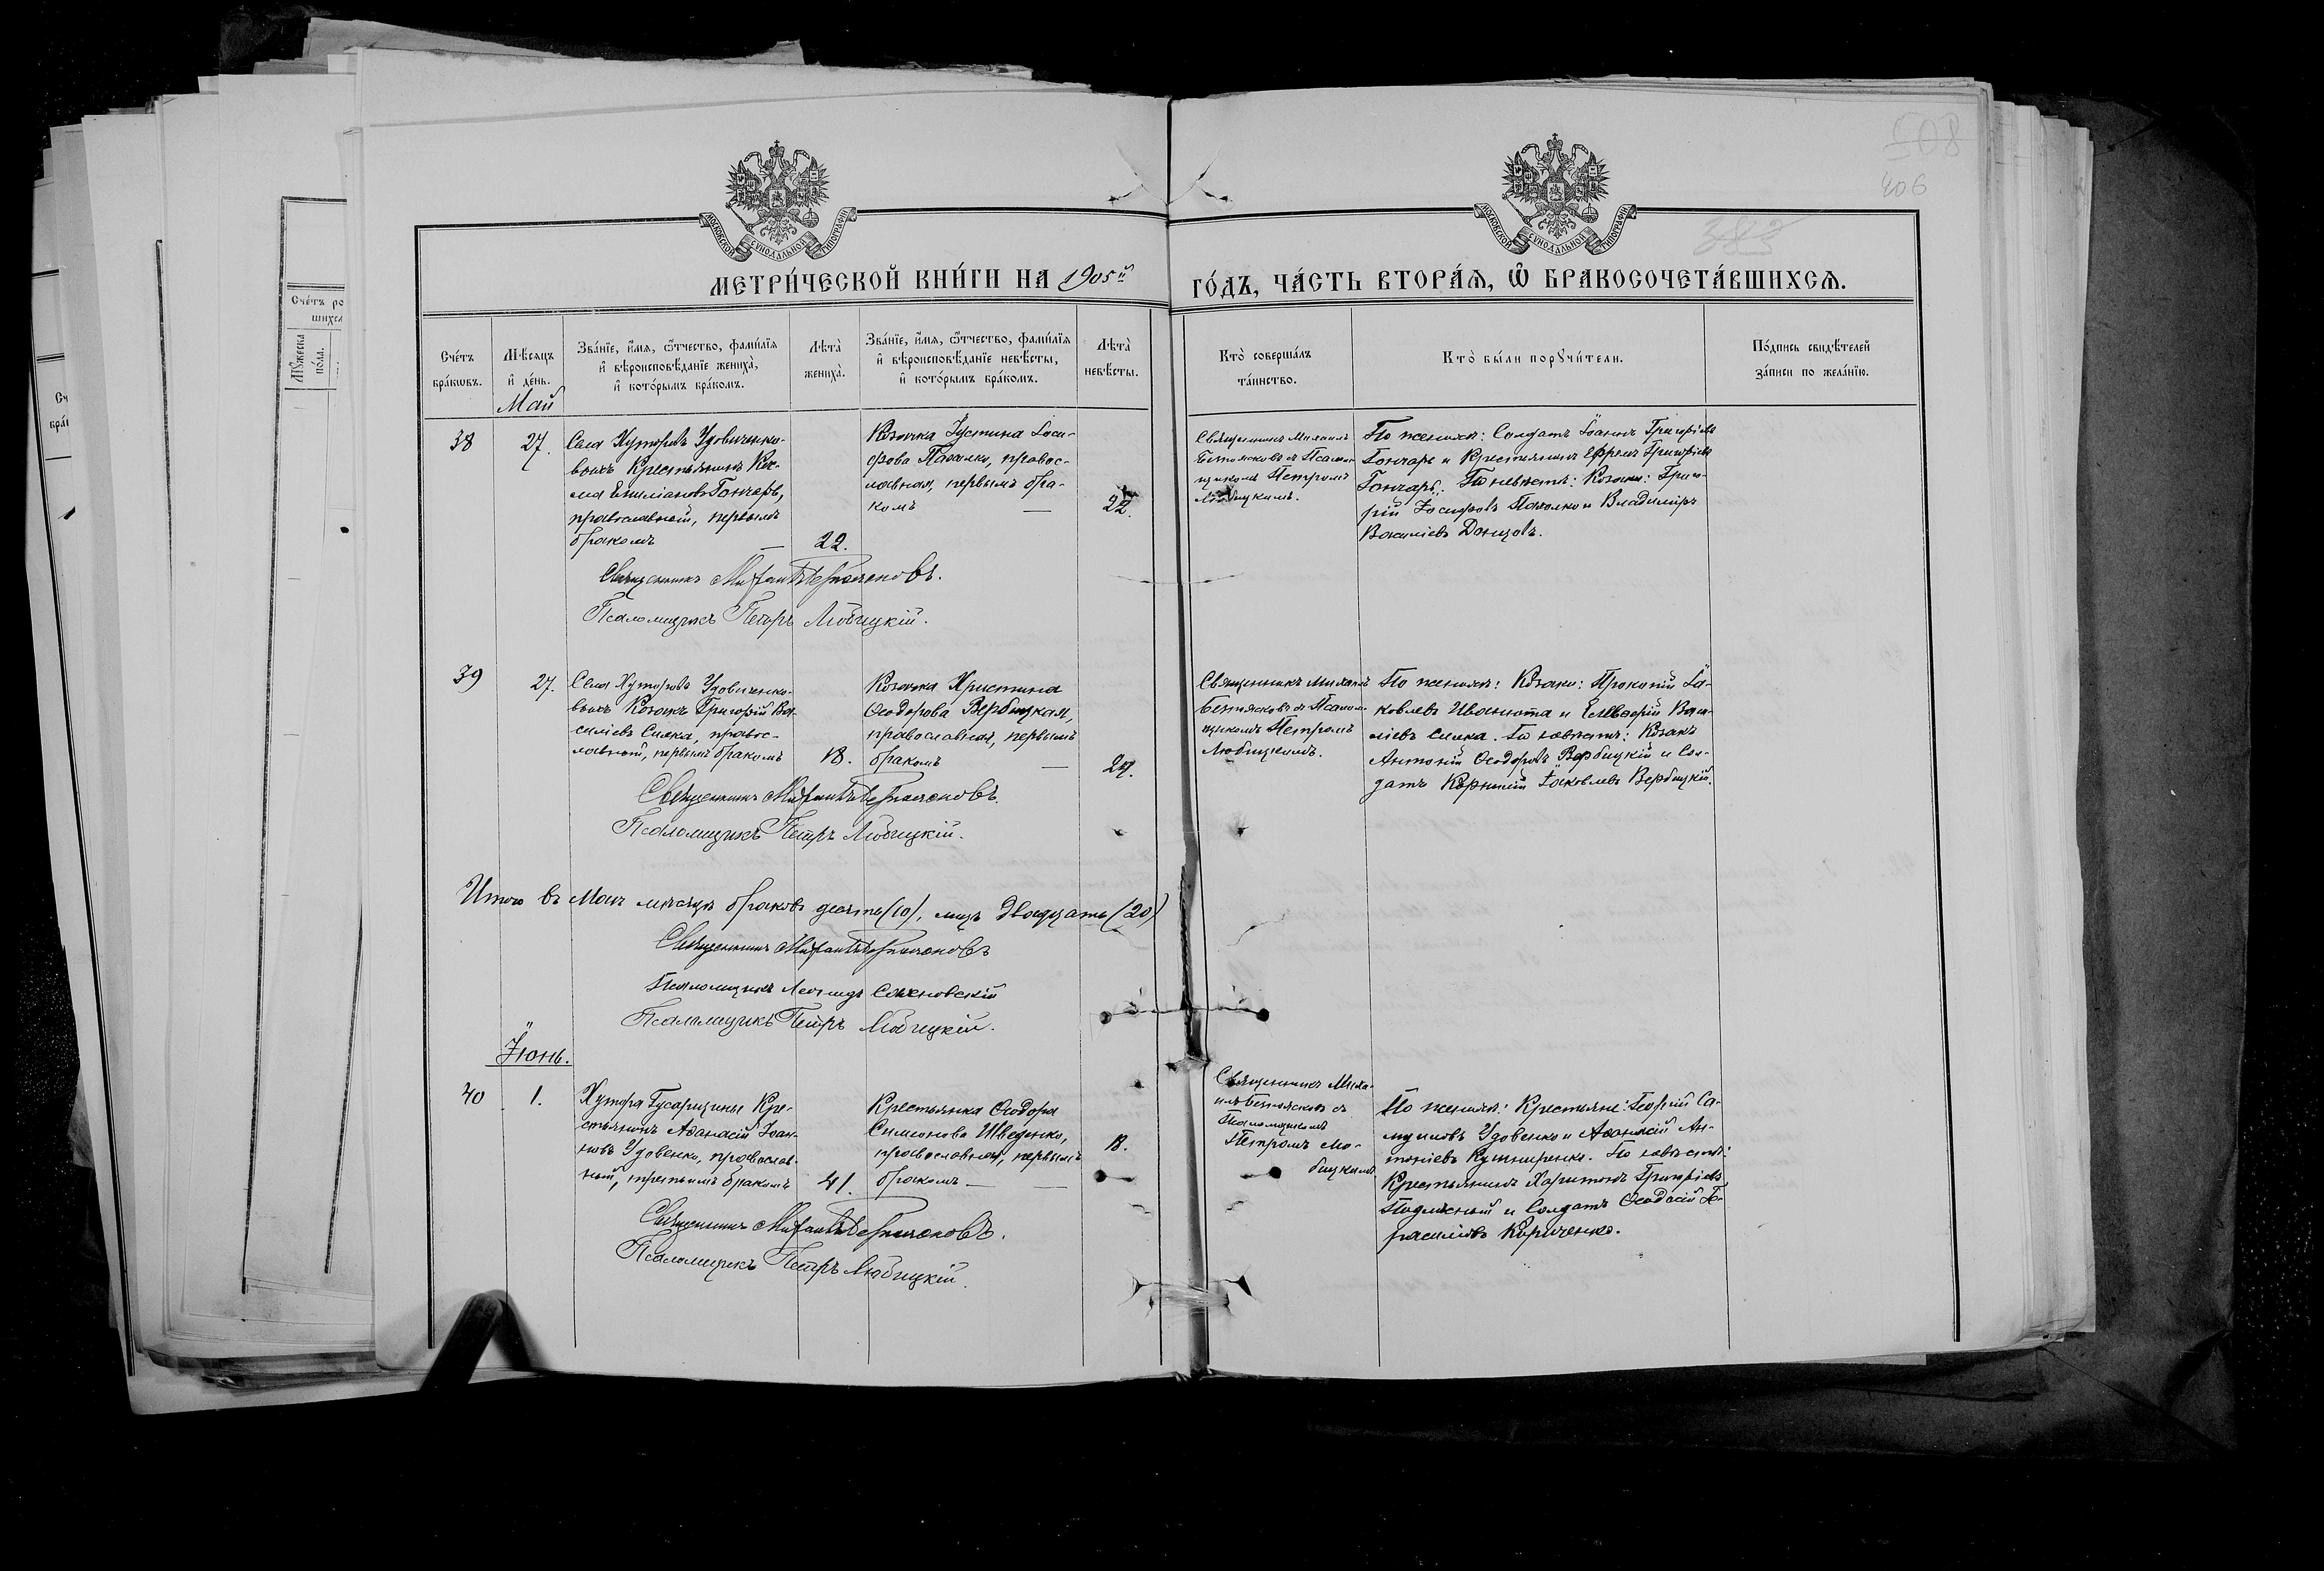 508
406
383
МОСКОВСКОЙ СУНОДАЛЬНОЙ ТИПОГРАФІИ
МОСКОВСКОЙ СУНОДАЛЬНОЙ ТИПОГРАФІИ
МЕТРИ́ЧЕСКОЙ КНИ́ГИ НА 1905й ГО́ДЪ, ЧА́СТЬ ВТОРА́Я, Ѡ҆ БРАКОСОЧЕТА́ВШИХСЯ.
Сче́тъ
бра́ковъ.
Мѣ́сяцъ
и҆ де́нь.
Зва́нїе, и҆́мя, ѻ҆́тчество, фами́лїя
и҆ вѣроисповѣ́данїе жениха̀,
и҆ кото́рымъ бра́комъ.
Лѣта̀
жениха̀.
Зва́нїе, и҆́мя, ѻ҆́тчество, фами́лїя
и҆ вѣроисповѣ́данїе невѣ́сты,
и҆ кото́рымъ бра́комъ.
Лѣта̀
невѣ́сты.
Кто̀ соверша́лъ
та́инство.
Кто̀ бы́ли порꙋчи́тели.
По́дпись свидѣ́телей
за́писи по жела́нїю.
Май
38
27.
Села Хуторовъ Удовиченко-
выхъ Крестьянинъ Кос-
ма Емиліановъ Гончаръ,
православный, первымъ
бракомъ —
22.
Козачка Іустина Іоси-
фова Пахалко, правос-
лавная, первымъ бра-
комъ —
22.
Священникъ Михаилъ
Безпоясковъ съ Псалом-
щикомъ Петромъ
Любицкимъ.
По женихѣ: Солдатъ Іоаннъ Григоріевъ
Гончаръ и Крестьянинъ Ефремъ Григоріевъ
Гончаръ. По невѣстѣ: Козаки: Григо-
рій Іосифовъ Пахалко и Владиміръ
Василіевъ Донцовъ.
Священникъ Михаилъ Безпоясковъ.
Псаломщикъ Петръ Любицкій.
39
27.
Села Хуторовъ Удовиченко-
выхъ Козакъ Григорій Ва-
силіевъ Силка, правос-
лавный, первымъ бракомъ
18.
Козачка Христина
Ѳеодорова Вербицкая,
православная, первымъ
бракомъ —
24.
Священникъ Михаилъ
Безпоясковъ съ Псалом-
щикомъ Петромъ
Любицкимъ.
По женихѣ: Козаки: Прокопій Іа-
ковлевъ Иванюта и Елевѳерій Васи-
ліевъ Силка. По невѣстѣ: Козакъ
Антоній Ѳеодоровъ Вербицкій и Сол-
датъ Корнилій Іаковлевъ Вербицкій.
Священникъ Михаилъ Безпоясковъ.
Псаломщикъ Петръ Любицкій.
Итого въ Маѣ мѣсяцѣ браковъ десять (10), лицъ двадцать (20)
Священникъ Михаилъ Безпоясковъ
Псаломщикъ Леонидъ
Псаломщикъ Петръ Любицкій.
Іюнь.
40
1.
Хутора Гусарщины Кре-
стьянинъ Аѳанасій Іоан-
новъ Удовенко, православ-
ный, третьимъ бракомъ
41.
Крестьянка Ѳеодора
Симеонова Шведенко,
православная, первымъ
бракомъ —
18.
Священникъ Миха-
илъ Безпоясковъ съ
Псаломщикомъ
Петромъ Лю-
бицкимъ
По женихѣ: Крестьяне: Георгій Са-
муиловъ Удовенко и Аѳанасій Ан-
тоніевъ Кушниренко. По невѣстѣ:
Крестьянинъ Харитонъ Григоріевъ
Подлѣсный и Солдатъ Ѳеодосій Ге-
расимовъ Кириченко.
Священникъ Михаилъ Безпоясковъ.
Псаломщикъ Петръ Любицкій.